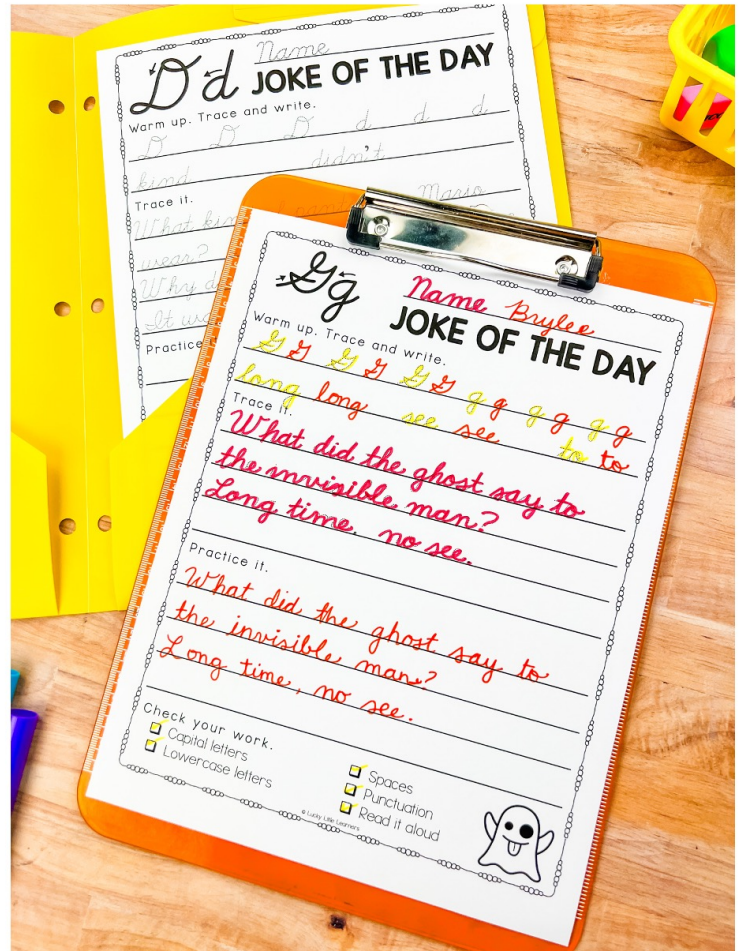 D d Name
JOKE OF THE DAY
Warm up. Trace and write.
D D D d d d
kind didn't
Trace it.
What kin Mario
wear?
Why d
It wa
Practice
Gg Name Brylee
JOKE OF THE DAY
Warm up. Trace and write.
G G G G G G g g g g g g
long long see see to to
Trace it.
What did the ghost say to
the invisible man?
Long time, no see.
Practice it.
What did the ghost say to
the invisible man?
Long time, no see.
Check your work.
Capital letters
Lowercase letters
Spaces
Punctuation
Read it aloud
© Lucky Little Learners